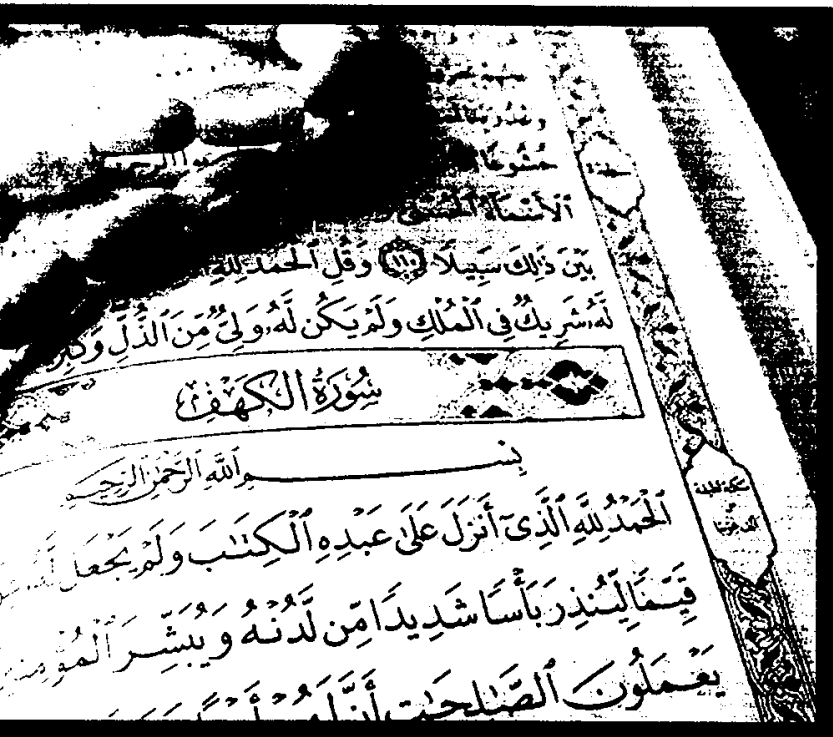 خُشُوعًا
ٱلْأَسْمَآءُ ٱلْحُسْنَىٰ
بَيْنَ ذَٰلِكَ سَبِيلًا ١١٠ وَقُلِ ٱلْحَمْدُ لِلَّهِ
لَّهُۥ شَرِيكٌ فِي ٱلْمُلْكِ وَلَمْ يَكُن لَّهُۥ وَلِيٌّ مِّنَ ٱلذُّلِّ وَكَبِّرْ
سُورَةُ الكَهْفِ
بِسْمِ ٱللَّهِ ٱلرَّحْمَٰنِ ٱلرَّحِيمِ
ٱلْحَمْدُ لِلَّهِ ٱلَّذِىٓ أَنزَلَ عَلَىٰ عَبْدِهِ ٱلْكِتَٰبَ وَلَمْ يَجْعَل لَّهُۥ
قَيِّمًا لِّيُنذِرَ بَأْسًا شَدِيدًا مِّن لَّدُنْهُ وَيُبَشِّرَ ٱلْمُؤْمِنِ
يَعْمَلُونَ ٱلصَّٰلِحَٰتِ أَنَّ لَهُمْ أَجْرًا